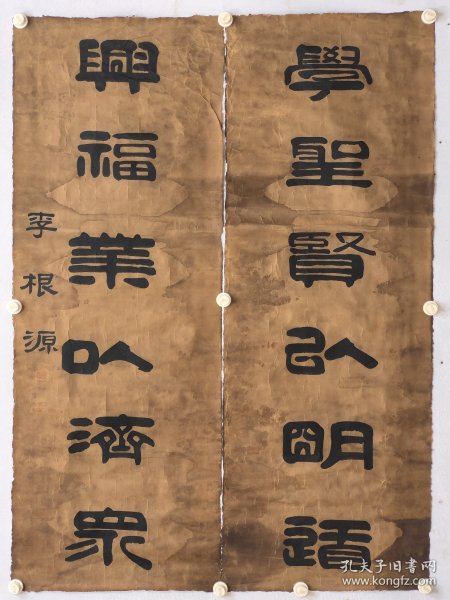 學聖賢以明道
興福業以濟眾
李根源
孔夫子旧书网
www.kongfz.com